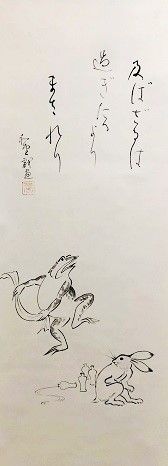 及ばざるは
過ぎたる
より
まされり